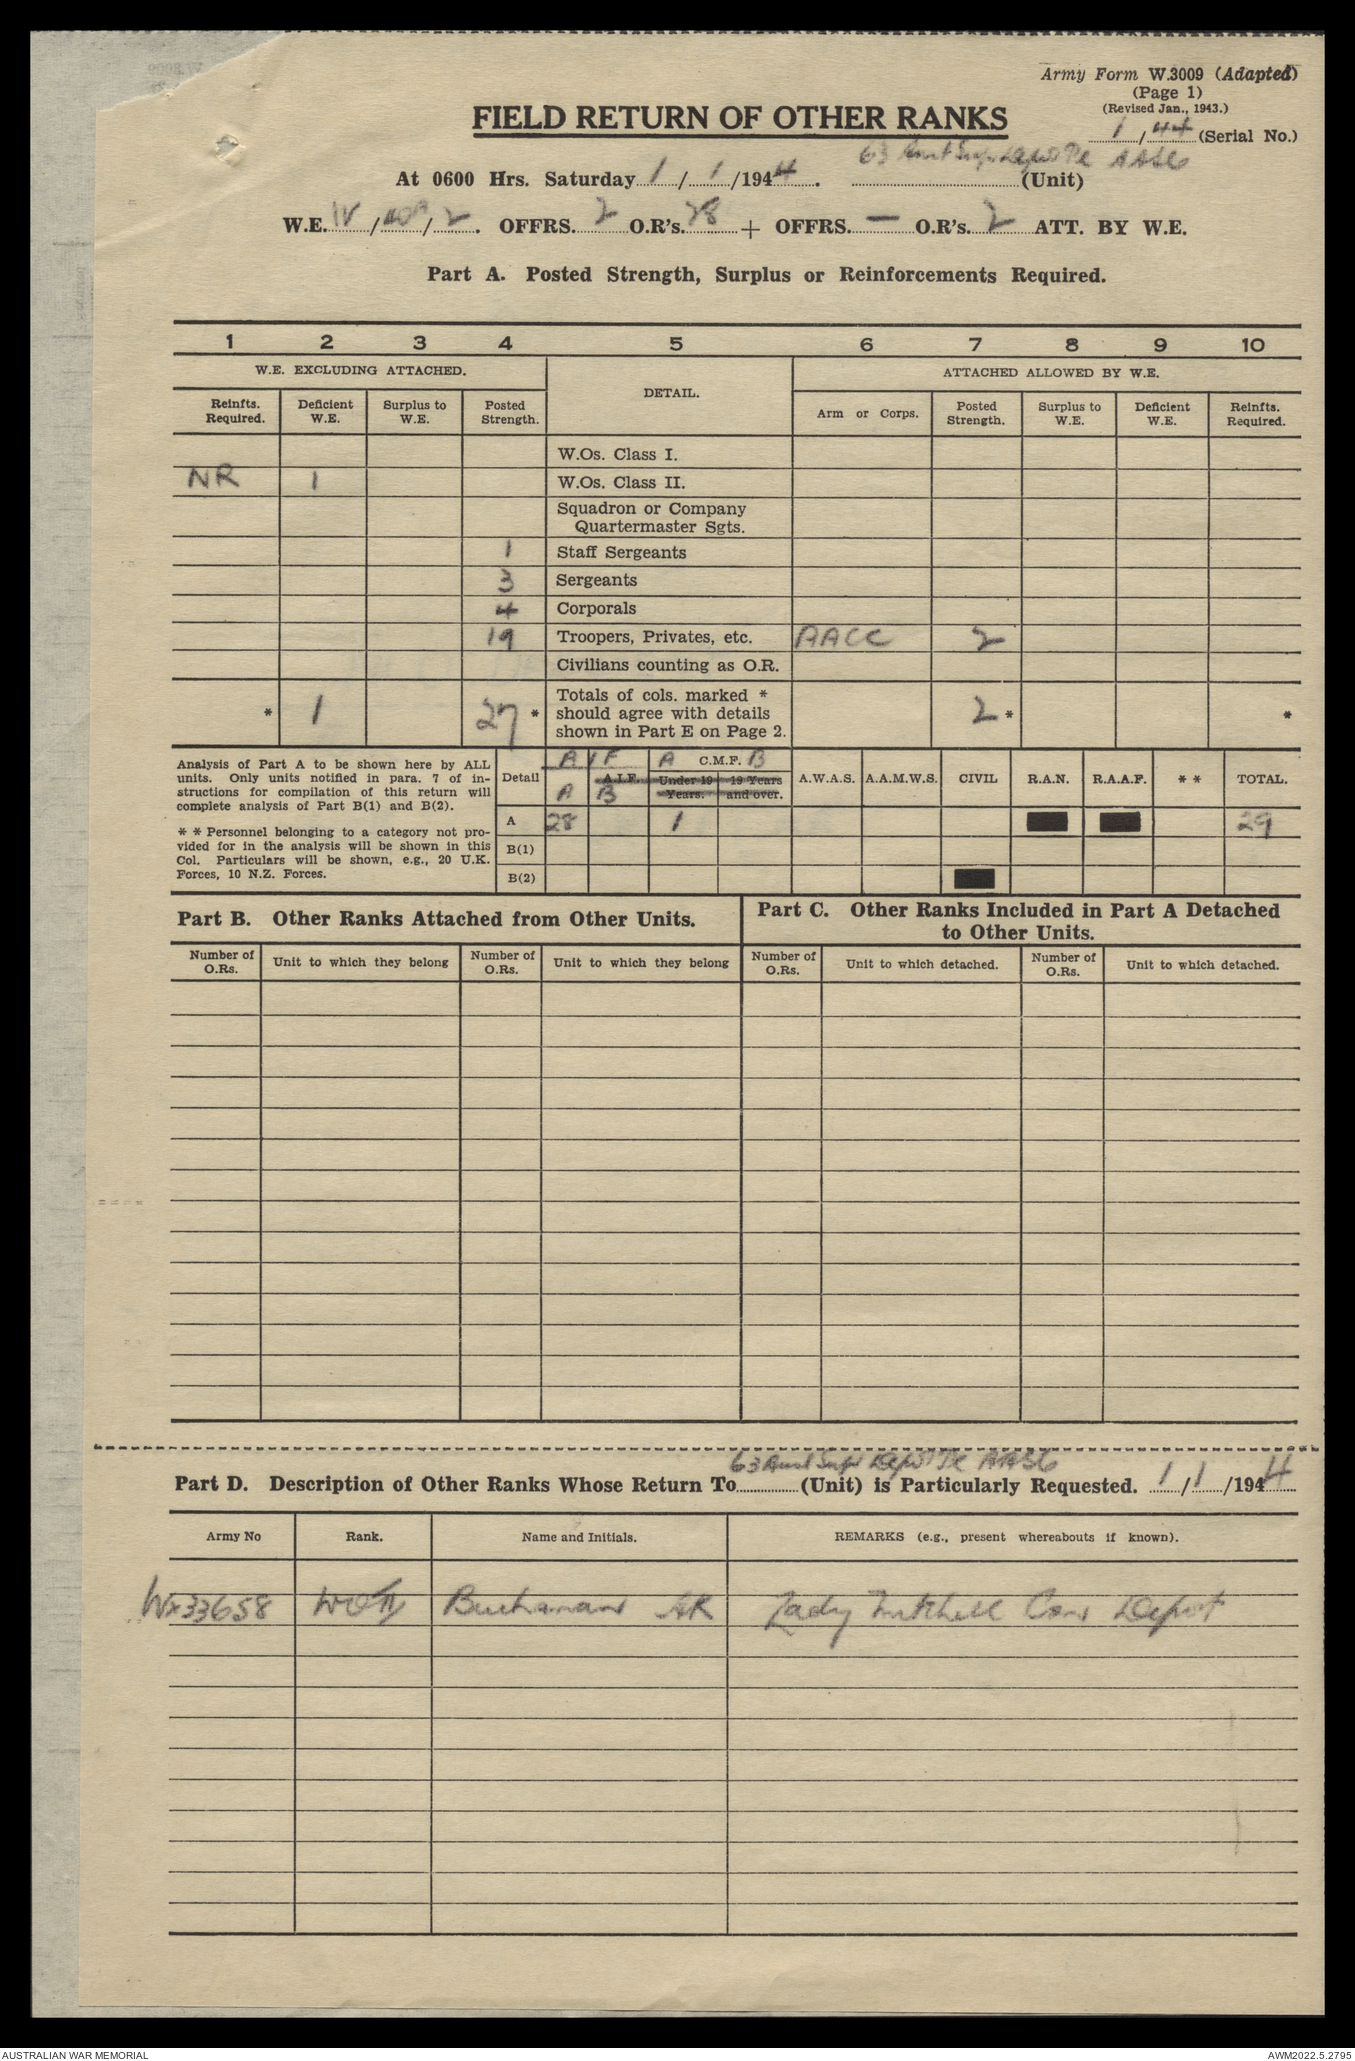 Army Form W.3009 (Adapted)
(Page 1)
(Revised Jan., 1943.)
FIELD RETURN OF OTHER RANKS
1 / 44 (Serial No.)
63 Aust Depot AASC
At 0600 Hrs. Saturday 1 / 1 /1944. (Unit)
W.E. IV / / 2. OFFRS. 2 O.R's. 28 + OFFRS. — O.R's. 2 ATT. BY W.E.
Part A. Posted Strength, Surplus or Reinforcements Required.
1 2 3 4 5 6 7 8 9 10
W.E. EXCLUDING ATTACHED. DETAIL. ATTACHED ALLOWED BY W.E.
Reinfts. Required. Deficient W.E. Surplus to W.E. Posted Strength. Arm or Corps. Posted Strength. Surplus to W.E. Deficient W.E. Reinfts. Required.
W.Os. Class I.
NR 1 W.Os. Class II.
Squadron or Company
Quartermaster Sgts.
1 Staff Sergeants
3 Sergeants
4 Corporals
19 Troopers, Privates, etc. AACC 2
Civilians counting as O.R.
Totals of cols. marked *
* 1 27 * should agree with details 2 * *
shown in Part E on Page 2.
Analysis of Part A to be shown here by ALL
units. Only units notified in para. 7 of in-
structions for compilation of this return will
complete analysis of Part B(1) and B(2).
* * Personnel belonging to a category not pro-
vided for in the analysis will be shown in this
Col. Particulars will be shown, e.g., 20 U.K.
Forces, 10 N.Z. Forces.
A I F A C.M.F. B
Detail A.I.F. Under 19 Years. 19 Years and over. A.W.A.S. A.A.M.W.S. CIVIL R.A.N. R.A.A.F. * * TOTAL.
A B
A 28 1 29
B(1)
B(2)
Part B. Other Ranks Attached from Other Units.
Part C. Other Ranks Included in Part A Detached
to Other Units.
Number of O.Rs. Unit to which they belong Number of O.Rs. Unit to which they belong Number of O.Rs. Unit to which detached. Number of O.Rs. Unit to which detached.
63 Aust Depot AASC
Part D. Description of Other Ranks Whose Return To (Unit) is Particularly Requested. 1 / 1 /1944
Army No Rank. Name and Initials. REMARKS (e.g., present whereabouts if known).
Wx33658 WOII Buchanan AR Lady Mitchell Con Depot
AUSTRALIAN WAR MEMORIAL
AWM2022.5.2795